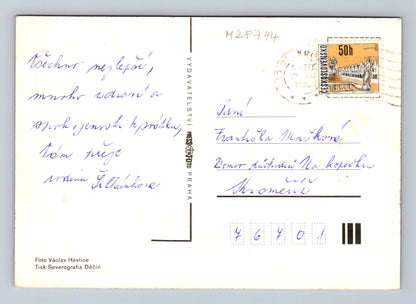 M28744
Všechno nejlepší,
mnoho zdraví a
spokojenosti k svátku,
Vám přeje
rodina
VYDAVATELSTVÍ
PRAHA
ČESKOSLOVENSKO
50h
TELČ
Paní
Františka Mašková
Domov důchodců Na kopečku
Kroměříž
7 6 7 0 1
Foto Václav Havlice
Tisk Severografia Děčín